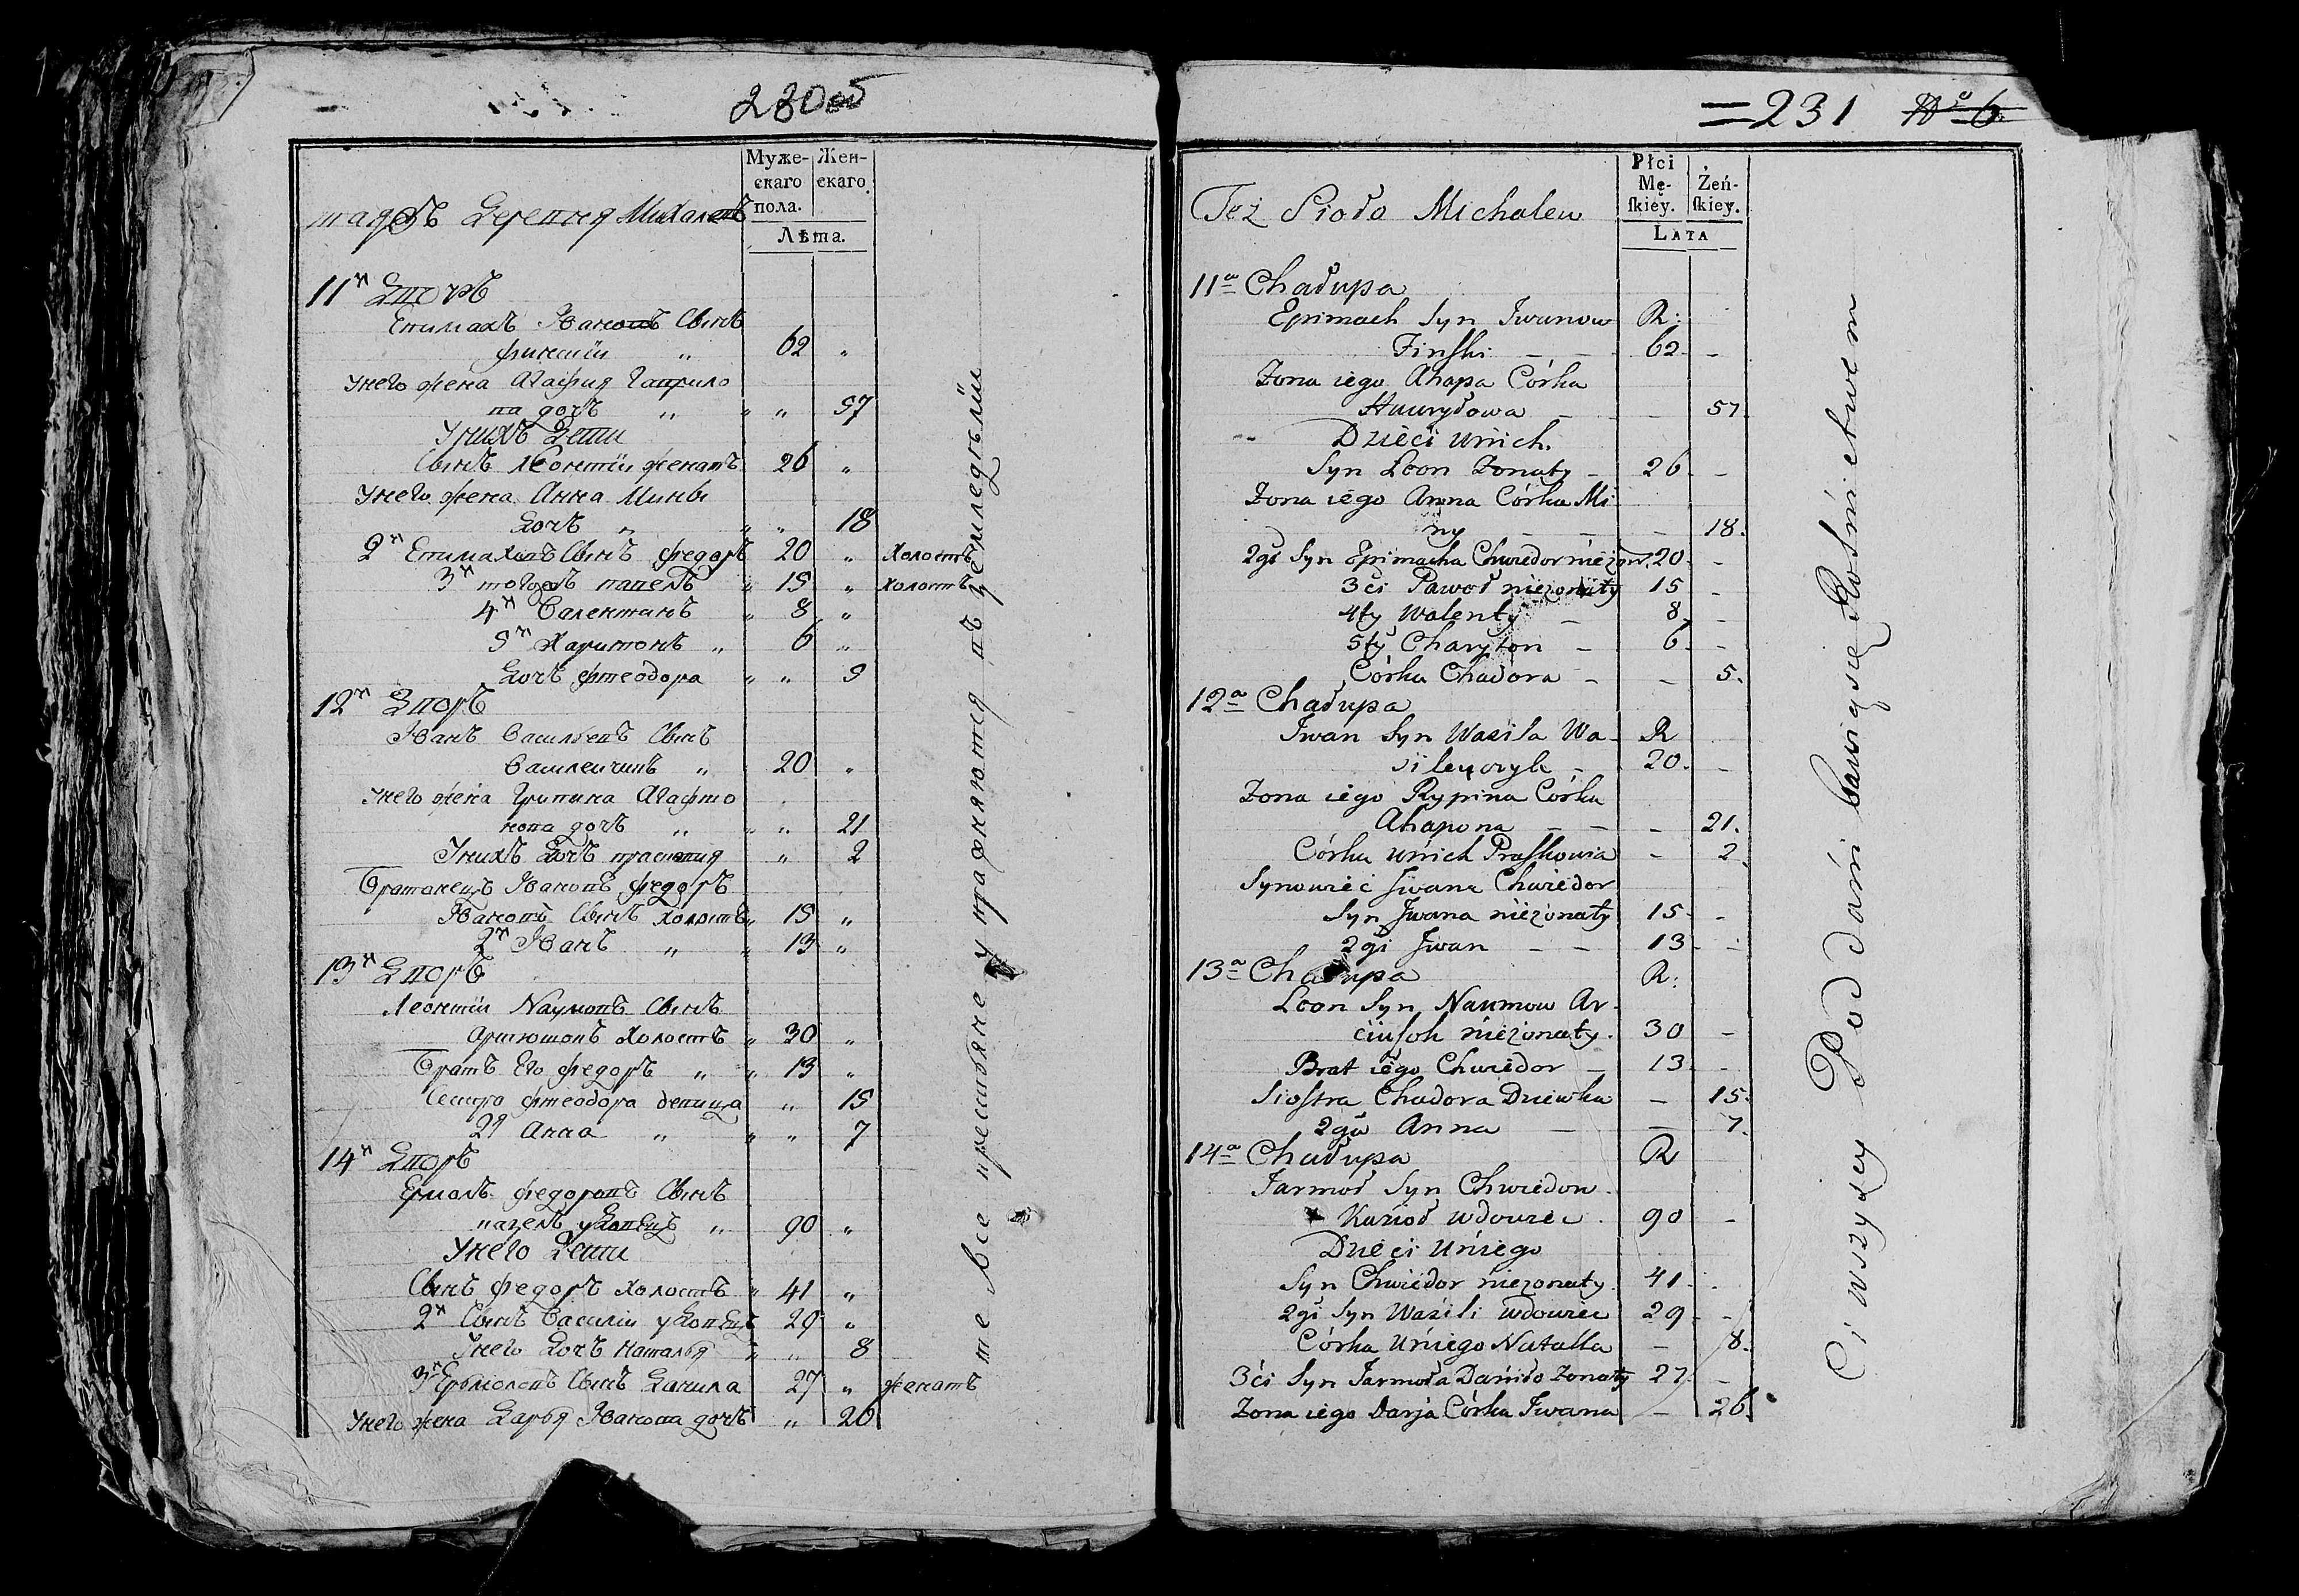 230об
Муже- Жен-
скаго скаго.
пола.
Лѣта.
таяжъ Деревня Михалевъ
11й Дворъ
Епимахъ Ивановъ Сынъ
финскій „ 62 „
Унего жена Агафия Гаврило
ва дочь „ „ „ 57
Унихъ Дети
Сынъ Леонтій женатъ 26 „
Унего жена Анна Мины
Дочь „ „ „ 18
2й Епимаховъ Сынъ федоръ 20 „ Холостъ
3й тогожъ павелъ „ 15 „ холостъ
4й Валентинъ „ 8 „
5й Харитонъ „ 6 „
Дочь фтеодора „ „ 5
12й Дворъ
Иванъ Васильевъ Сынъ
Василевичъ „ 20 „
Унего жена Грипина Агафто
нова дочь „ „ „ 21
Унихъ Дочь прасковия „ 2
Братанецъ Ивановъ федоръ
Ивановъ Сынъ холостъ „ 15 „
2й Иванъ „ „ 13 „
13й Дворъ
Леонтій Наумовъ Сынъ
Артюшонъ Холостъ „ 30 „
Братъ Его федоръ „ „ 13 „
Сестра фтеодора девица „ 15
2я Анна „ „ „ 7
14й Дворъ
Ермолъ федоровъ Сынъ
удовецъ „ 90 „
Унего Дети
Сынъ федоръ холостъ „ 41 „
2й Сынъ Василій удовецъ 29 „
Унего Дочь Наталья „ „ 8
3й Ермоловъ Сынъ Данила 27 „ женатъ
Унего жена Дарья Иванова дочь „ 26
те все крестьяне упражняются въ земледѣліи
=231 №6
Płci
Mę- Żeń-
skiey. skiey.
LATA
Też Sioło Michalew
11a Chałupa
Epimach Syn Iwanow R:
Finski — — 62. —
Zona iego Ahapa Córka
Hawryłowa — — 57.
Dzieci unich.
Syn Leon Zonaty — 26. —
Zona iego Anna Córka Mi
ny — — — 18.
2gi Syn Epimacha Chwiedor nieżon. 20. —
3ci Paweł nieżonaty 15 —
4ty Walenty — 8. —
5ty Charyton — 6. —
Córka Chadora — — 5.
12a Chałupa
Iwan Syn Wasila Wa- R
silewczyk — 20. —
Zona iego Rypina Córka
Ahapona — — — 21.
Córka unich Praskowia — 2.
Synowiec Iwana Chwiedor
Syn Iwana nieżonaty 15. —
2gi Iwan — — 13. —
13a Chałupa R:
Leon Syn Naumow Ar-
ciuſoh nieżonaty. 30 —
Brat iego Chwiedor — 13. —
Siostra Chadora Dziewka — 15.
2ga Anna — — 7.
14a Chałupa R
Jarmoł Syn Chwiedow.
Kozioł wdowiec. 90 —
Dzieci uniego
Syn Chwiedor nieżonaty. 41 —
2gi Syn Wasili wdowiec 29 —
Córka uniego Natalla — 8.
3ci Syn Jarmoła Daniło Zonaty 27. —
Zona iego Darja Córka Iwana — 26.
Ci wszyscy Poddani bawią się Rolnictwem